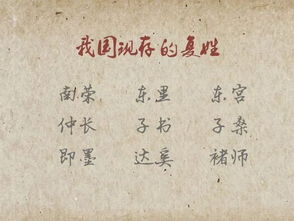 我国现存的复姓
南荣 东里 东宫
仲长 子书 子桑
即墨 达奚 褚师